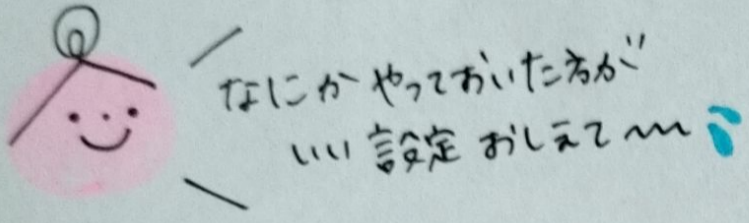 なにかやっておいた方が
いい設定おしえて〜